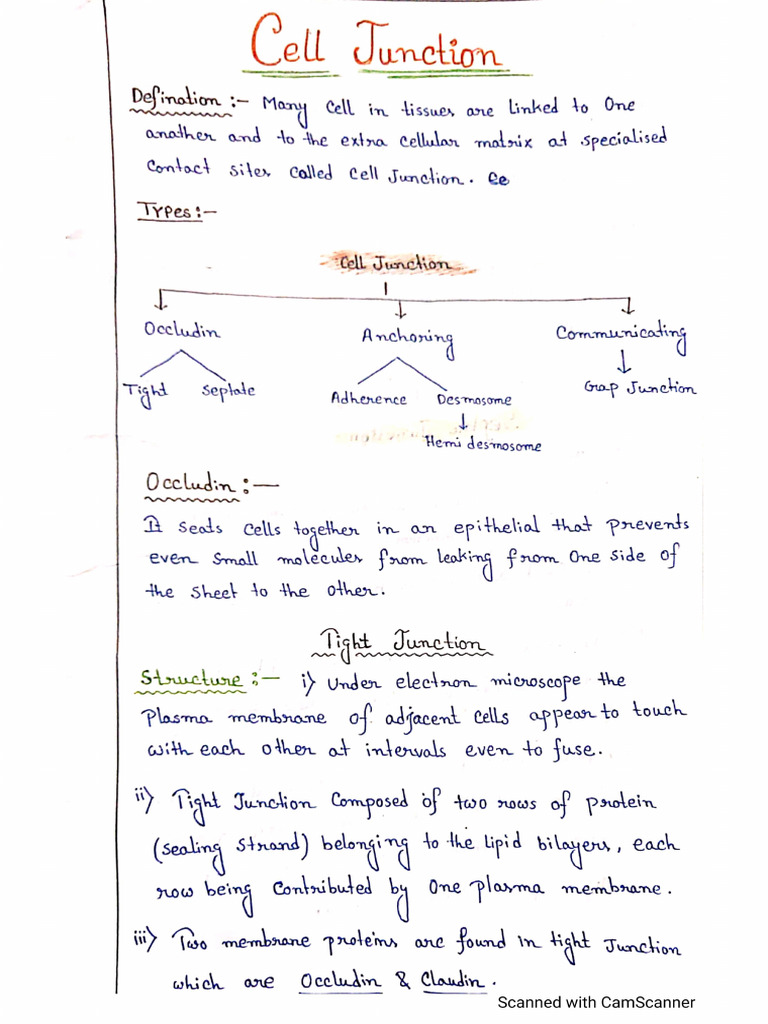 Cell Junction
Defination :- Many cell in tissues are linked to one
anather and to the extra cellular matrix at specialised
contact sites called cell Junction.
Types :-
Cell Junction
Occludin Anchoring Communicating
Tight Septate Adherence Desmosome Gap Junction
Hemi desmosome
Occludin :-
It seats cells together in an epithelial that prevents
even small molecules from leaking from one side of
the sheet to the other.
Tight Junction
Structure :- i) Under electron microscope the
Plasma membrane of adjacent cells appear to touch
with each other at intervals even to fuse.
ii) Tight Junction Composed of two rows of protein
(sealing strand) belonging to the lipid bilayers, each
row being contributed by one plasma membrane.
iii) Two membrane proteins are found in tight Junction
which are Occludin & Claudin.
Scanned with CamScanner